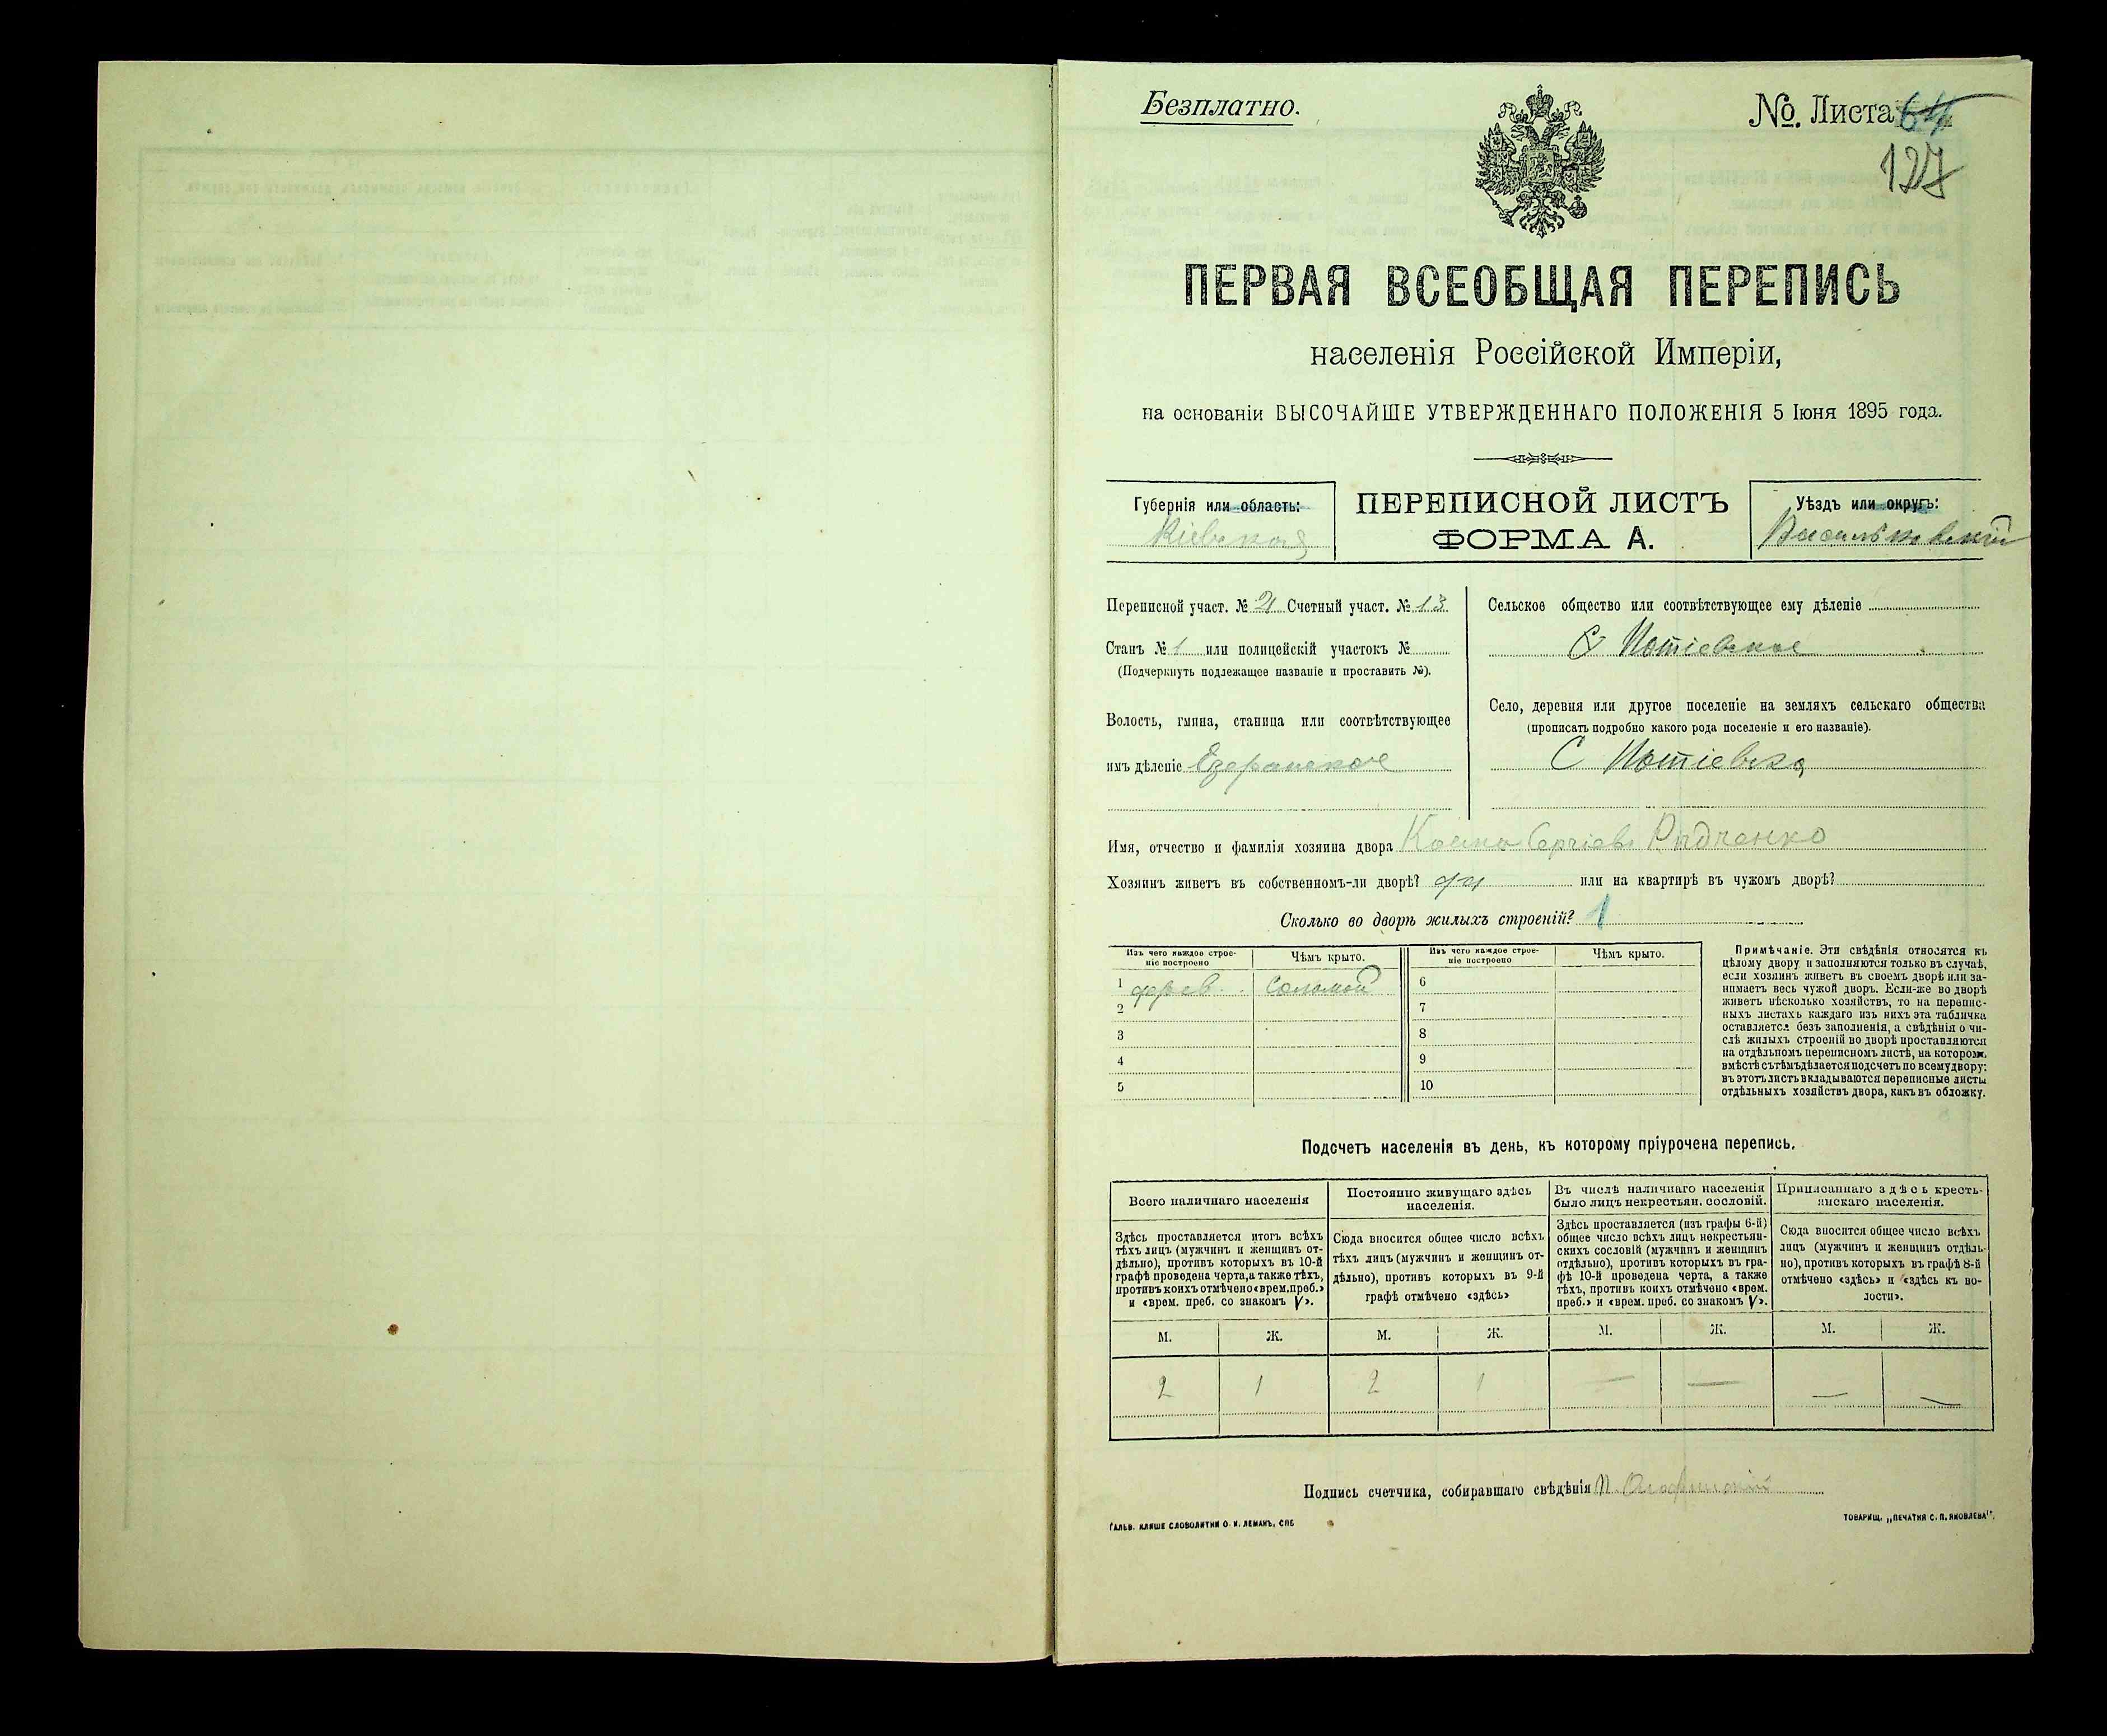 Безплатно.
№. Листа 64
127
ПЕРВАЯ ВСЕОБЩАЯ ПЕРЕПИСЬ
населенія Россійской Имперіи,
на основаніи ВЫСОЧАЙШЕ УТВЕРЖДЕННАГО ПОЛОЖЕНІЯ 5 Іюня 1895 года.
Губернія или область:
Кіевская
ПЕРЕПИСНОЙ ЛИСТЪ
ФОРМА А.
Уѣздъ или округъ:
Васильковскій
Переписной участ. № 21 Счетный участ. № 13
Станъ № 1 или полицейскій участокъ №
(Подчеркнуть подлежащее названіе и проставить №).
Волость, гмина, станица или соотвѣтствующее
имъ дѣленіе Езерянское
Сельское общество или соотвѣтствующее ему дѣленіе
Потіевское
Село, деревня или другое поселеніе на земляхъ сельскаго общества
(прописать подробно какого рода поселеніе и его названіе).
С Потіевка
Имя, отчество и фамилія хозяина двора Косма Сергіев Радченко
Хозяинъ живетъ въ собственномъ-ли дворѣ? да или на квартирѣ въ чужомъ дворѣ?
Сколько во дворѣ жилыхъ строеній? 1
Изъ чего каждое строе-
ніе построено
Чѣмъ крыто.
Изъ чего каждое строе-
ніе построено
Чѣмъ крыто.
1 дерев. Соломой
2
3
4
5
6
7
8
9
10
Примѣчаніе. Эти свѣдѣнія относятся къ
цѣлому двору и заполняются только въ случаѣ,
если хозяинъ живетъ въ своемъ дворѣ или за-
нимаетъ весь чужой дворъ. Если-же во дворѣ
живетъ нѣсколько хозяйствъ, то на перепис-
ныхъ листахъ каждаго изъ нихъ эта табличка
оставляется безъ заполненія, а свѣдѣнія о чи-
слѣ жилыхъ строеній во дворѣ проставляются
на отдѣльномъ переписномъ листѣ, на которомъ
вмѣстѣ съ тѣмъ дѣлается подсчетъ по всему двору:
въ этотъ листъ вкладываются переписные листы
отдѣльныхъ хозяйствъ двора, какъ въ обложку.
Подсчетъ населенія въ день, къ которому пріурочена перепись.
Всего наличнаго населенія
Здѣсь проставляется итогъ всѣхъ
тѣхъ лицъ (мужчинъ и женщинъ от-
дѣльно), противъ которыхъ въ 10-й
графѣ проведена черта, а также тѣхъ,
противъ коихъ отмѣчено «врем. преб.»
и «врем. преб. со знакомъ V».
Постоянно живущаго здѣсь
населенія.
Сюда вносится общее число всѣхъ
тѣхъ лицъ (мужчинъ и женщинъ от-
дѣльно), противъ которыхъ въ 9-й
графѣ отмѣчено «здѣсь»
Въ числѣ наличнаго населенія
было лицъ некрестьян. сословій.
Здѣсь проставляется (изъ графы 6-й)
общее число всѣхъ лицъ некрестьян-
скихъ сословій (мужчинъ и женщинъ
отдѣльно), противъ которыхъ въ гра-
фѣ 10-й проведена черта, а также
тѣхъ, противъ коихъ отмѣчено «врем.
преб.» и «врем. преб. со знакомъ V».
Приписаннаго здѣсь кресть-
янскаго населенія.
Сюда вносится общее число всѣхъ
лицъ (мужчинъ и женщинъ отдѣль-
но), противъ которыхъ въ графѣ 8-й
отмѣчено «здѣсь» и «здѣсь къ во-
лости».
М. Ж. М. Ж. М. Ж. М. Ж.
2 1 2 1 — — — —
Подпись счетчика, собиравшаго свѣдѣнія
ГАЛЬВ. КЛИШЕ СЛОВОЛИТНИ О. И. ЛЕМАНЪ, СПБ
ТОВАРИЩ. „ПЕЧАТНЯ С. П. ЯКОВЛЕВА".